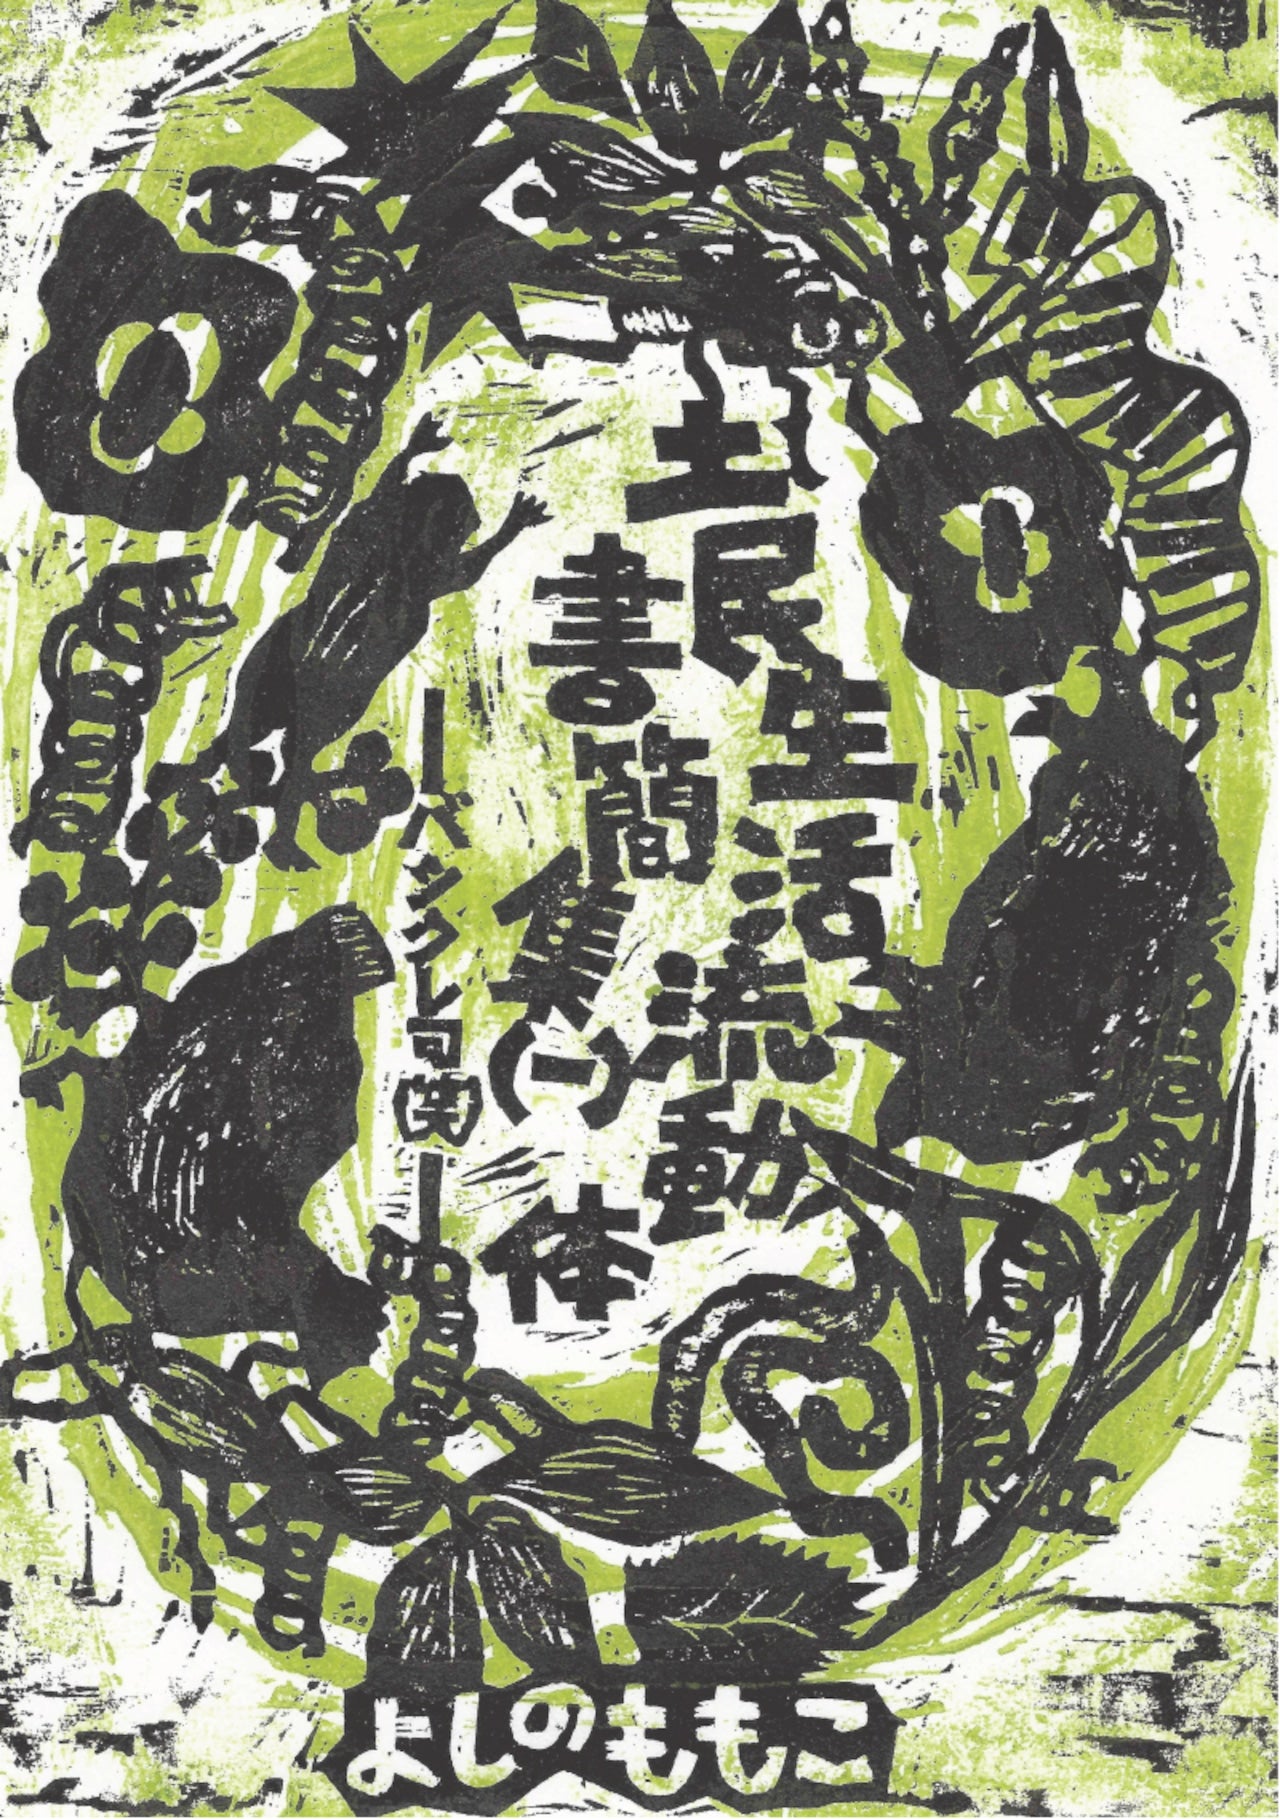 土民生活流動体
書簡集(一)
ーバックレ可(笑)ー
よしのももこ